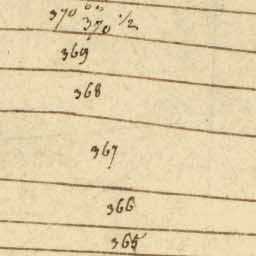 370
370 1/2
369
368
367
366
365